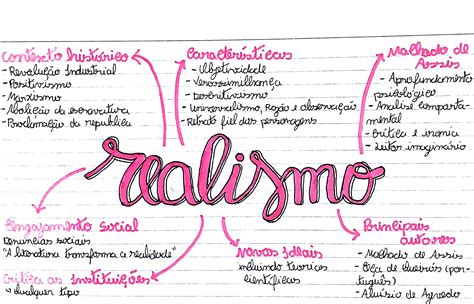 contexto histórico
- Revolução Industrial
- Positivismo
- Marxismo
- Abolição da escravatura
- Proclamação da república
características
- Objetividade
- Verossimilhança
- Descritivismo
- Universalismo, Razão e observação
- Retrato fiel das personagens
Machado de
Assis
- Aprofundamento
psicológico
- Análise comporta-
mental
- Crítica e ironia
- Leitor imaginário
realismo
Engajamento social
denúncias sociais
"A literatura transforma a realidade"
Crítica as Instituições
↳ qualquer tipo
Novos Ideais
incluindo teorias
científicas
Principais
autores
- Machado de Assis
- Eça de Queirós (por-
tuguês)
- Aluísio de Azevedo